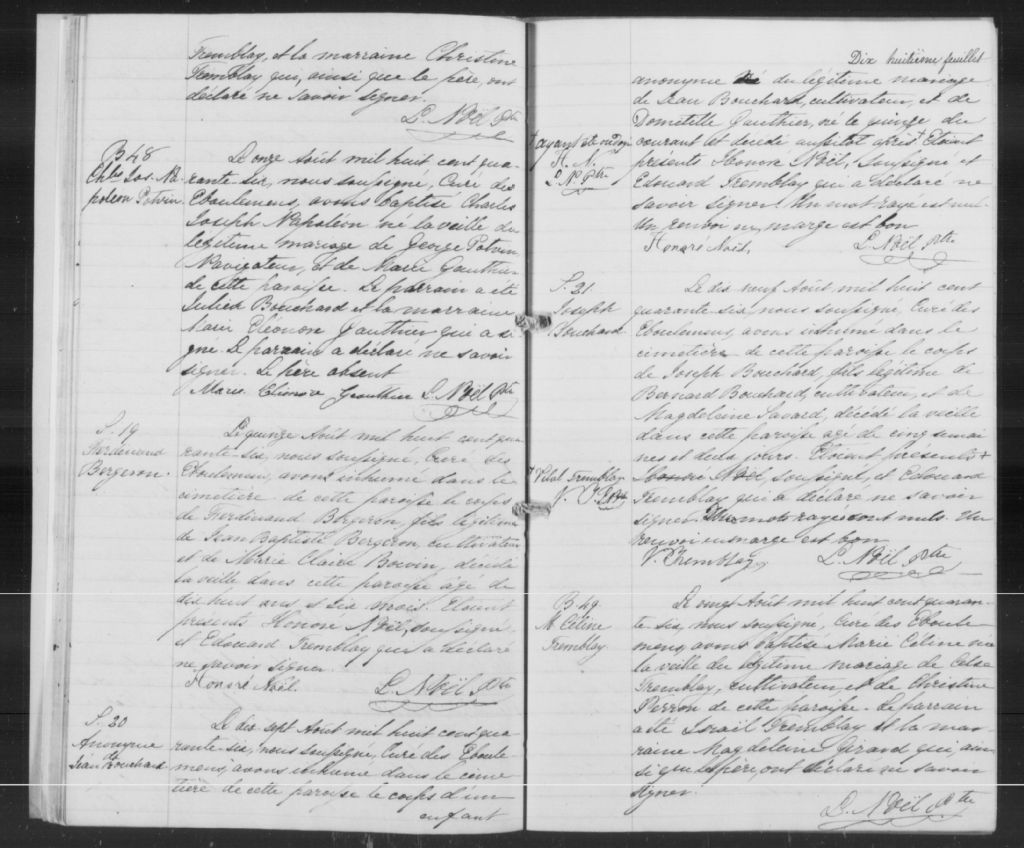 Tremblay, et la marraine Christine
Tremblay qui, ainsi que le père, ont
déclaré ne savoir signer.
L. Noël Ptre
B 48
Chls Jos. Na-
poleon Potvin
Le onze Août mil huit cent qua-
rante-six, nous soussigné, Curé des
Eboulemens, avons baptisé Charles
Joseph Napoléon né la veille du
légitime mariage de George Potvin
Navigateur, et de Marie Gauthier
de cette paroisse. Le parrain a été
Julien Bouchard et la marraine
Marie Eléonore Gauthier qui a si-
gné. Le parrain a déclaré ne savoir
signer. Le père absent
Marie Eléonore Gauthier L. Noël Ptre
S. 19
Ferdinand
Bergeron.
Le quinze Août mil huit cent qua-
rante-six, nous soussigné, Curé des
Eboulemens, avons inhumé dans le
cimetière de cette paroisse le corps
de Ferdinand Bergeron, fils légitime
de Jean Baptiste Bergeron, cultivateur
et de Marie Claire Boivin, décédé
la veille dans cette paroisse âgé de
dix huit ans et six mois. Etaient
présents Honoré Noël, soussigné,
et Edouard Tremblay qui a déclaré
ne savoir signer.
Honoré Noël. L. Noël Ptre
S. 20
Anonyme
de
Jean Bouchard
Le dix sept Août mil huit cent qua-
rante-six, nous soussigné, Curé des Eboule-
mens, avons inhumé dans le cime-
tière de cette paroisse le corps d'un
enfant
Dix huitième feuillet
anonyme du légitime mariage
de Jean Bouchard, cultivateur, et de
Domitille Gauthier, né le quinze du
courant et décédé aussitôt après + Etaient
présents Honoré Noël, soussigné et
Edouard Tremblay qui a déclaré ne
savoir signer. Un mot rayé est nul.
Un renvoi en marge est bon
Honoré Noël. L. Noël Ptre
+ ayant été ondoyé
H. N.
L. N. Ptre
S. 21.
Joseph
Bouchard
Le dix neuf Août mil huit cent
quarante-six, nous soussigné, Curé des
Eboulemens, avons inhumé dans le
cimetière de cette paroisse le corps
de Joseph Bouchard, fils légitime de
Bernard Bouchard, cultivateur, et de
Magdeleine Savard, décédé la veille
dans cette paroisse agé de cinq semai-
nes et deux jours. Etaient présents +
Honoré Noël, soussigné, et Edouard
Tremblay qui a déclaré ne savoir
signer. Deux mots rayés sont nuls. Un
renvoi en marge est bon
V. Tremblay, L. Noël Ptre
+ Vital Tremblay
V. T. L. N. Ptre
B. 49.
M. Céline
Tremblay.
Le vingt Août mil huit cent quaran-
te-six, nous soussigné, Curé des Eboule-
mens, avons baptisé Marie Céline née
la veille du légitime mariage de Celse
Tremblay, cultivateur, et de Christine
Perron de cette paroisse. Le parrain
a été Israïl Tremblay et la mar-
raine Magdeleine Girard qui, ain-
si que le père, ont déclaré ne savoir
signer.
L. Noël Ptre